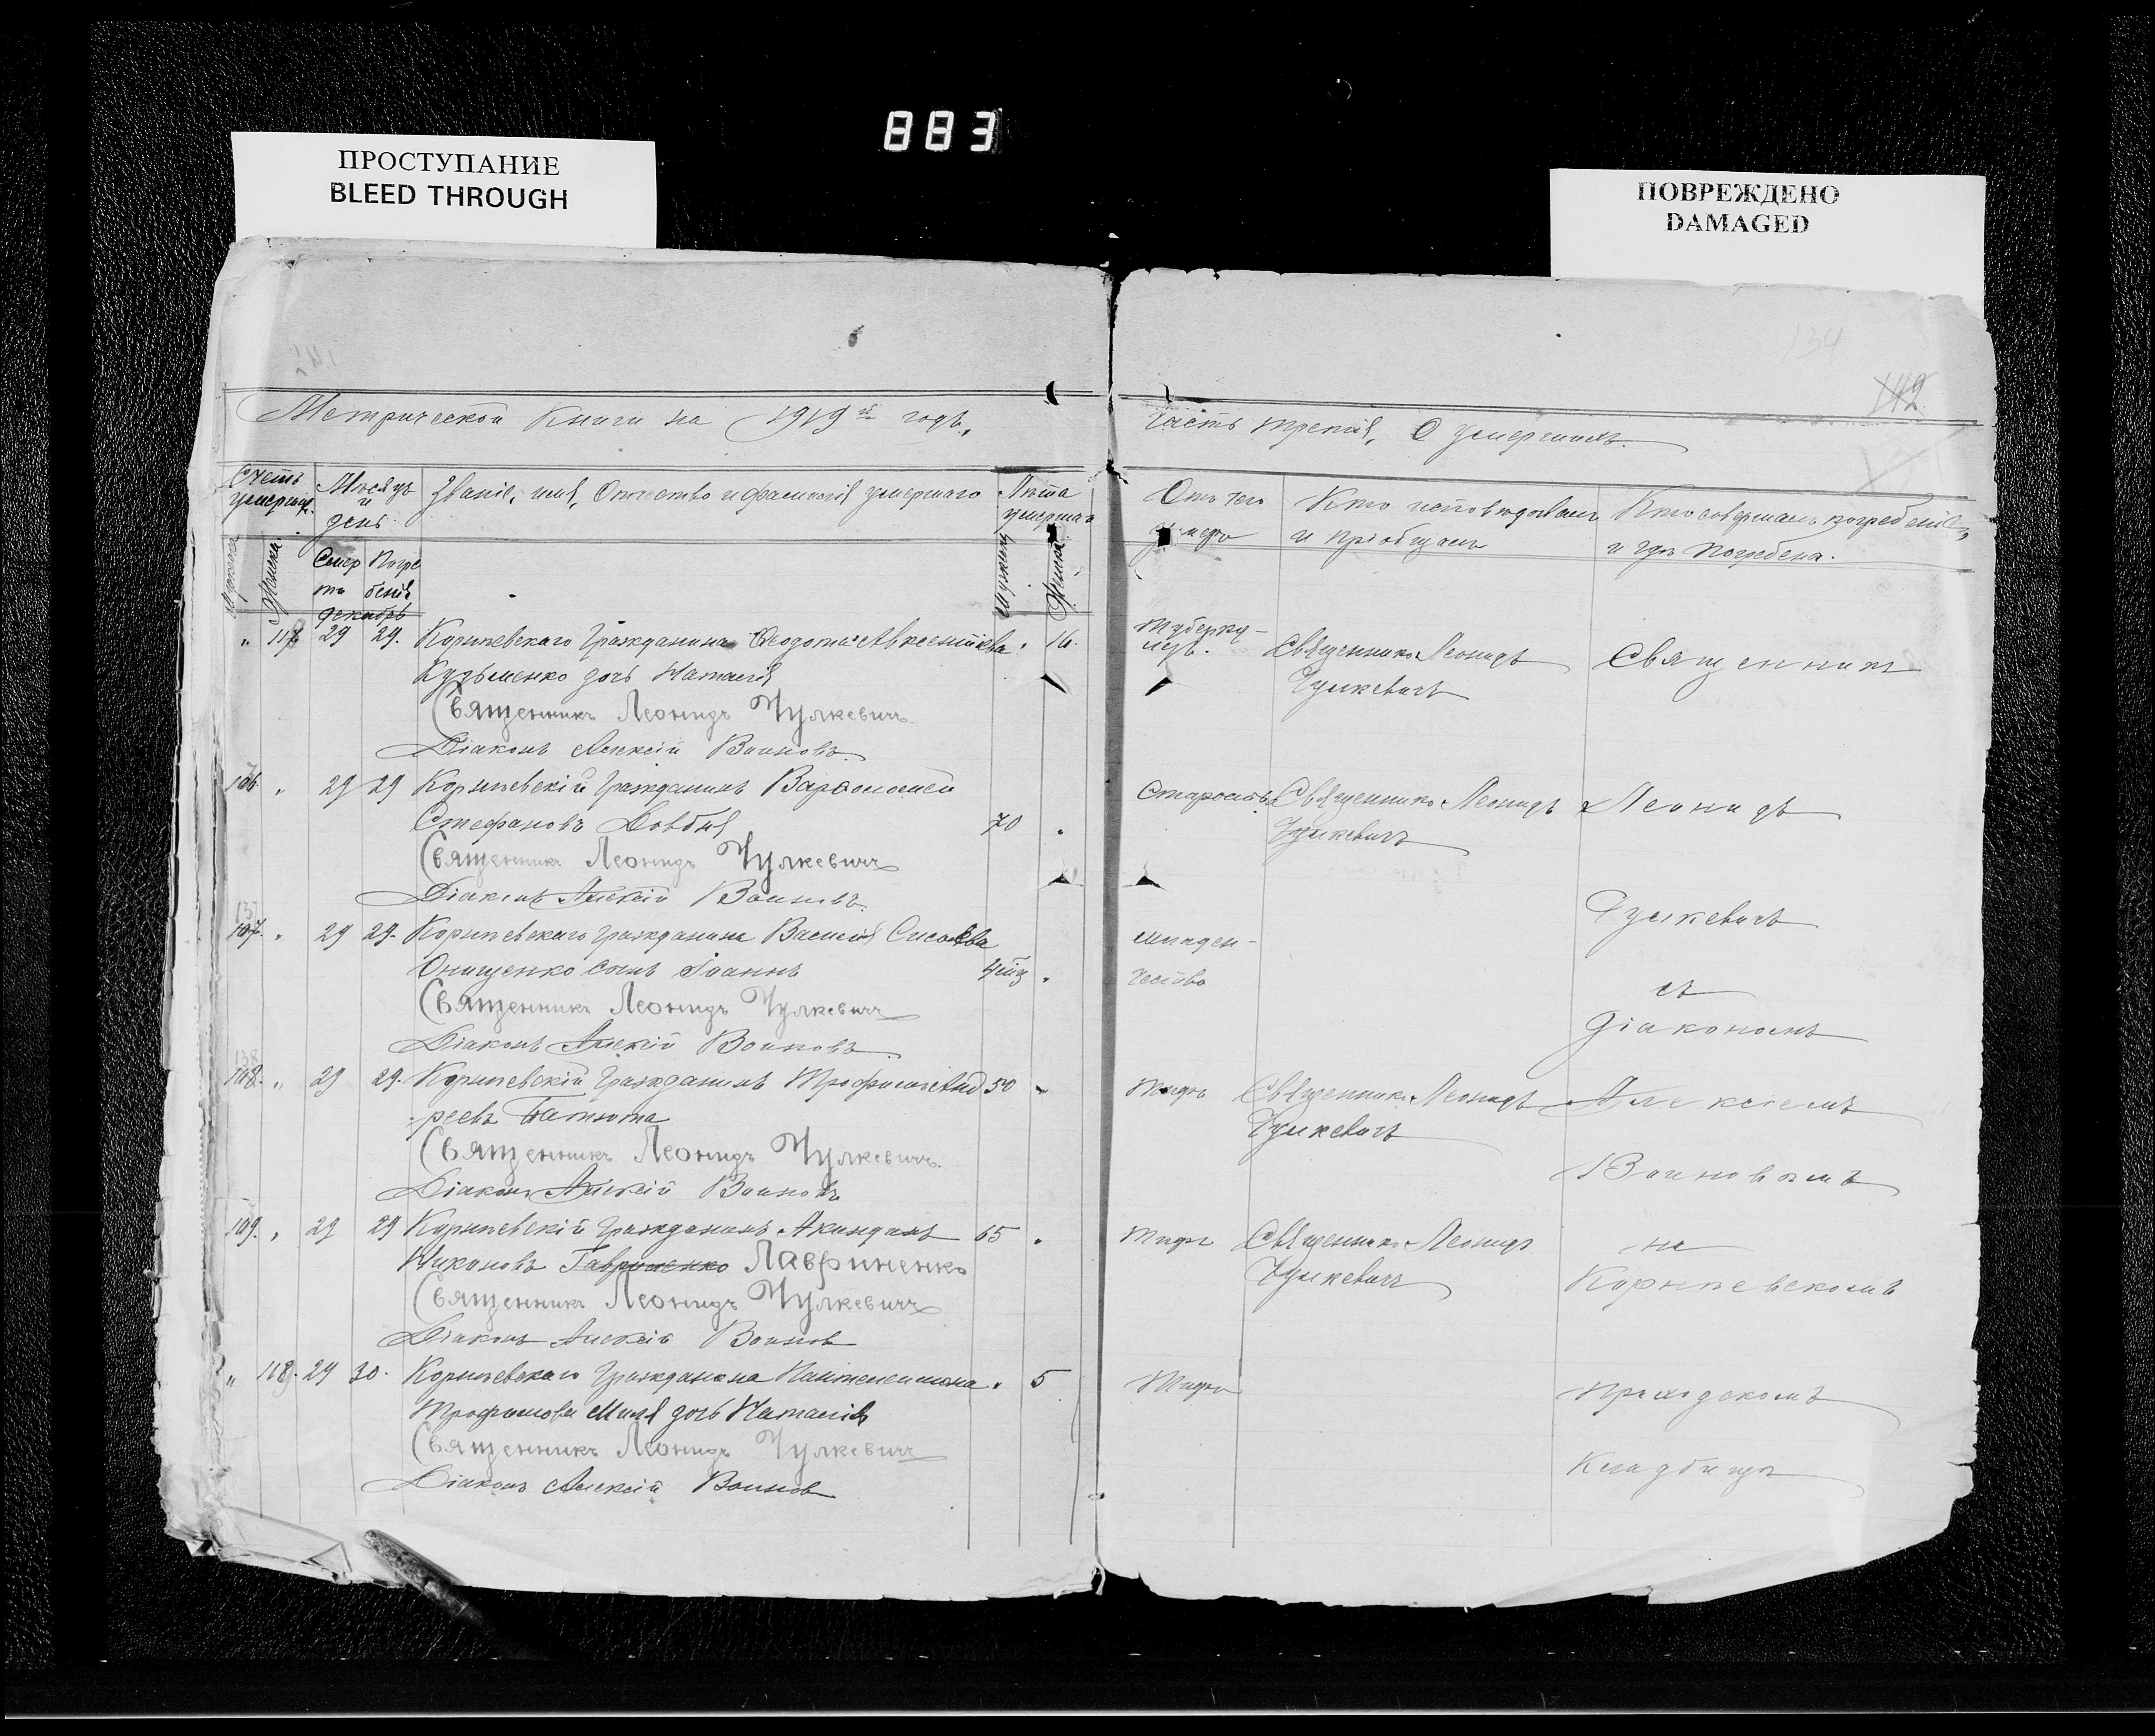 883
ПРОСТУПАНИЕ
BLEED THROUGH
ПОВРЕЖДЕНО
DAMAGED
134
112
Метрической Книги на 1919й годъ,
Часть третія, О умершихъ.
Счетъ умершихъ.
Мѣсяцъ и день
Званіе, имя, Отчество и фамилія умершаго
Лѣта умершаго
Отъ чего умеръ
Кто исповѣдовалъ и пріобщалъ
Кто совершалъ погребеніе, и гдѣ погребена.
Мужеска
Женска
Смерти
Погребенія
декабрь
" 117 29 29. Корыпевскаго Гражданина Ѳеодота Авксентіева " 16.
Кузьменко дочь Наталія
Священникъ Леонидъ Чулкевичъ
Діаконъ Алексій Воиновъ
Туберкулезъ.
Священникъ Леонидъ Чулкевичъ
Священникъ
106. " 29 29 Корыпевскій Гражданинъ Варѳоломей
Стефановъ Довбня 70 "
Священникъ Леонидъ Чулкевичъ
Діаконъ Алексій Воиновъ
Старость
Священникъ Леонидъ Чулкевичъ
Леонидъ
Чулкевичъ
107. " 29 29. Корыпевскаго Гражданина Василія
Онищенко сынъ Іоаннъ "
Священникъ Леонидъ Чулкевичъ
Діаконъ Алексій Воиновъ
младенчество
съ
Діакономъ
108. " 29 29. Корыпевскій Гражданинъ Трофимъ Анд 50 "
реевъ Батюта
Священникъ Леонидъ Чулкевичъ
Діаконъ Алексій Воиновъ
Тифъ
Священникъ Леонидъ Чулкевичъ
Алексіемъ
Воиновымъ
109. " 29 29 Корыпевскій Гражданинъ Акиндинъ 65 "
Никоновъ Гавриленко Лавриненко
Священникъ Леонидъ Чулкевичъ
Діаконъ Алексій Воиновъ
Тифъ
Священникъ Леонидъ Чулкевичъ
на
Корыпевскомъ
" 118. 29 30. Корыпевскаго Гражданина Пантелеимона " 5
Трофимова дочь Наталія
Священникъ Леонидъ Чулкевичъ
Діаконъ Алексій Воиновъ
Тифъ
приходскомъ
Кладбищѣ